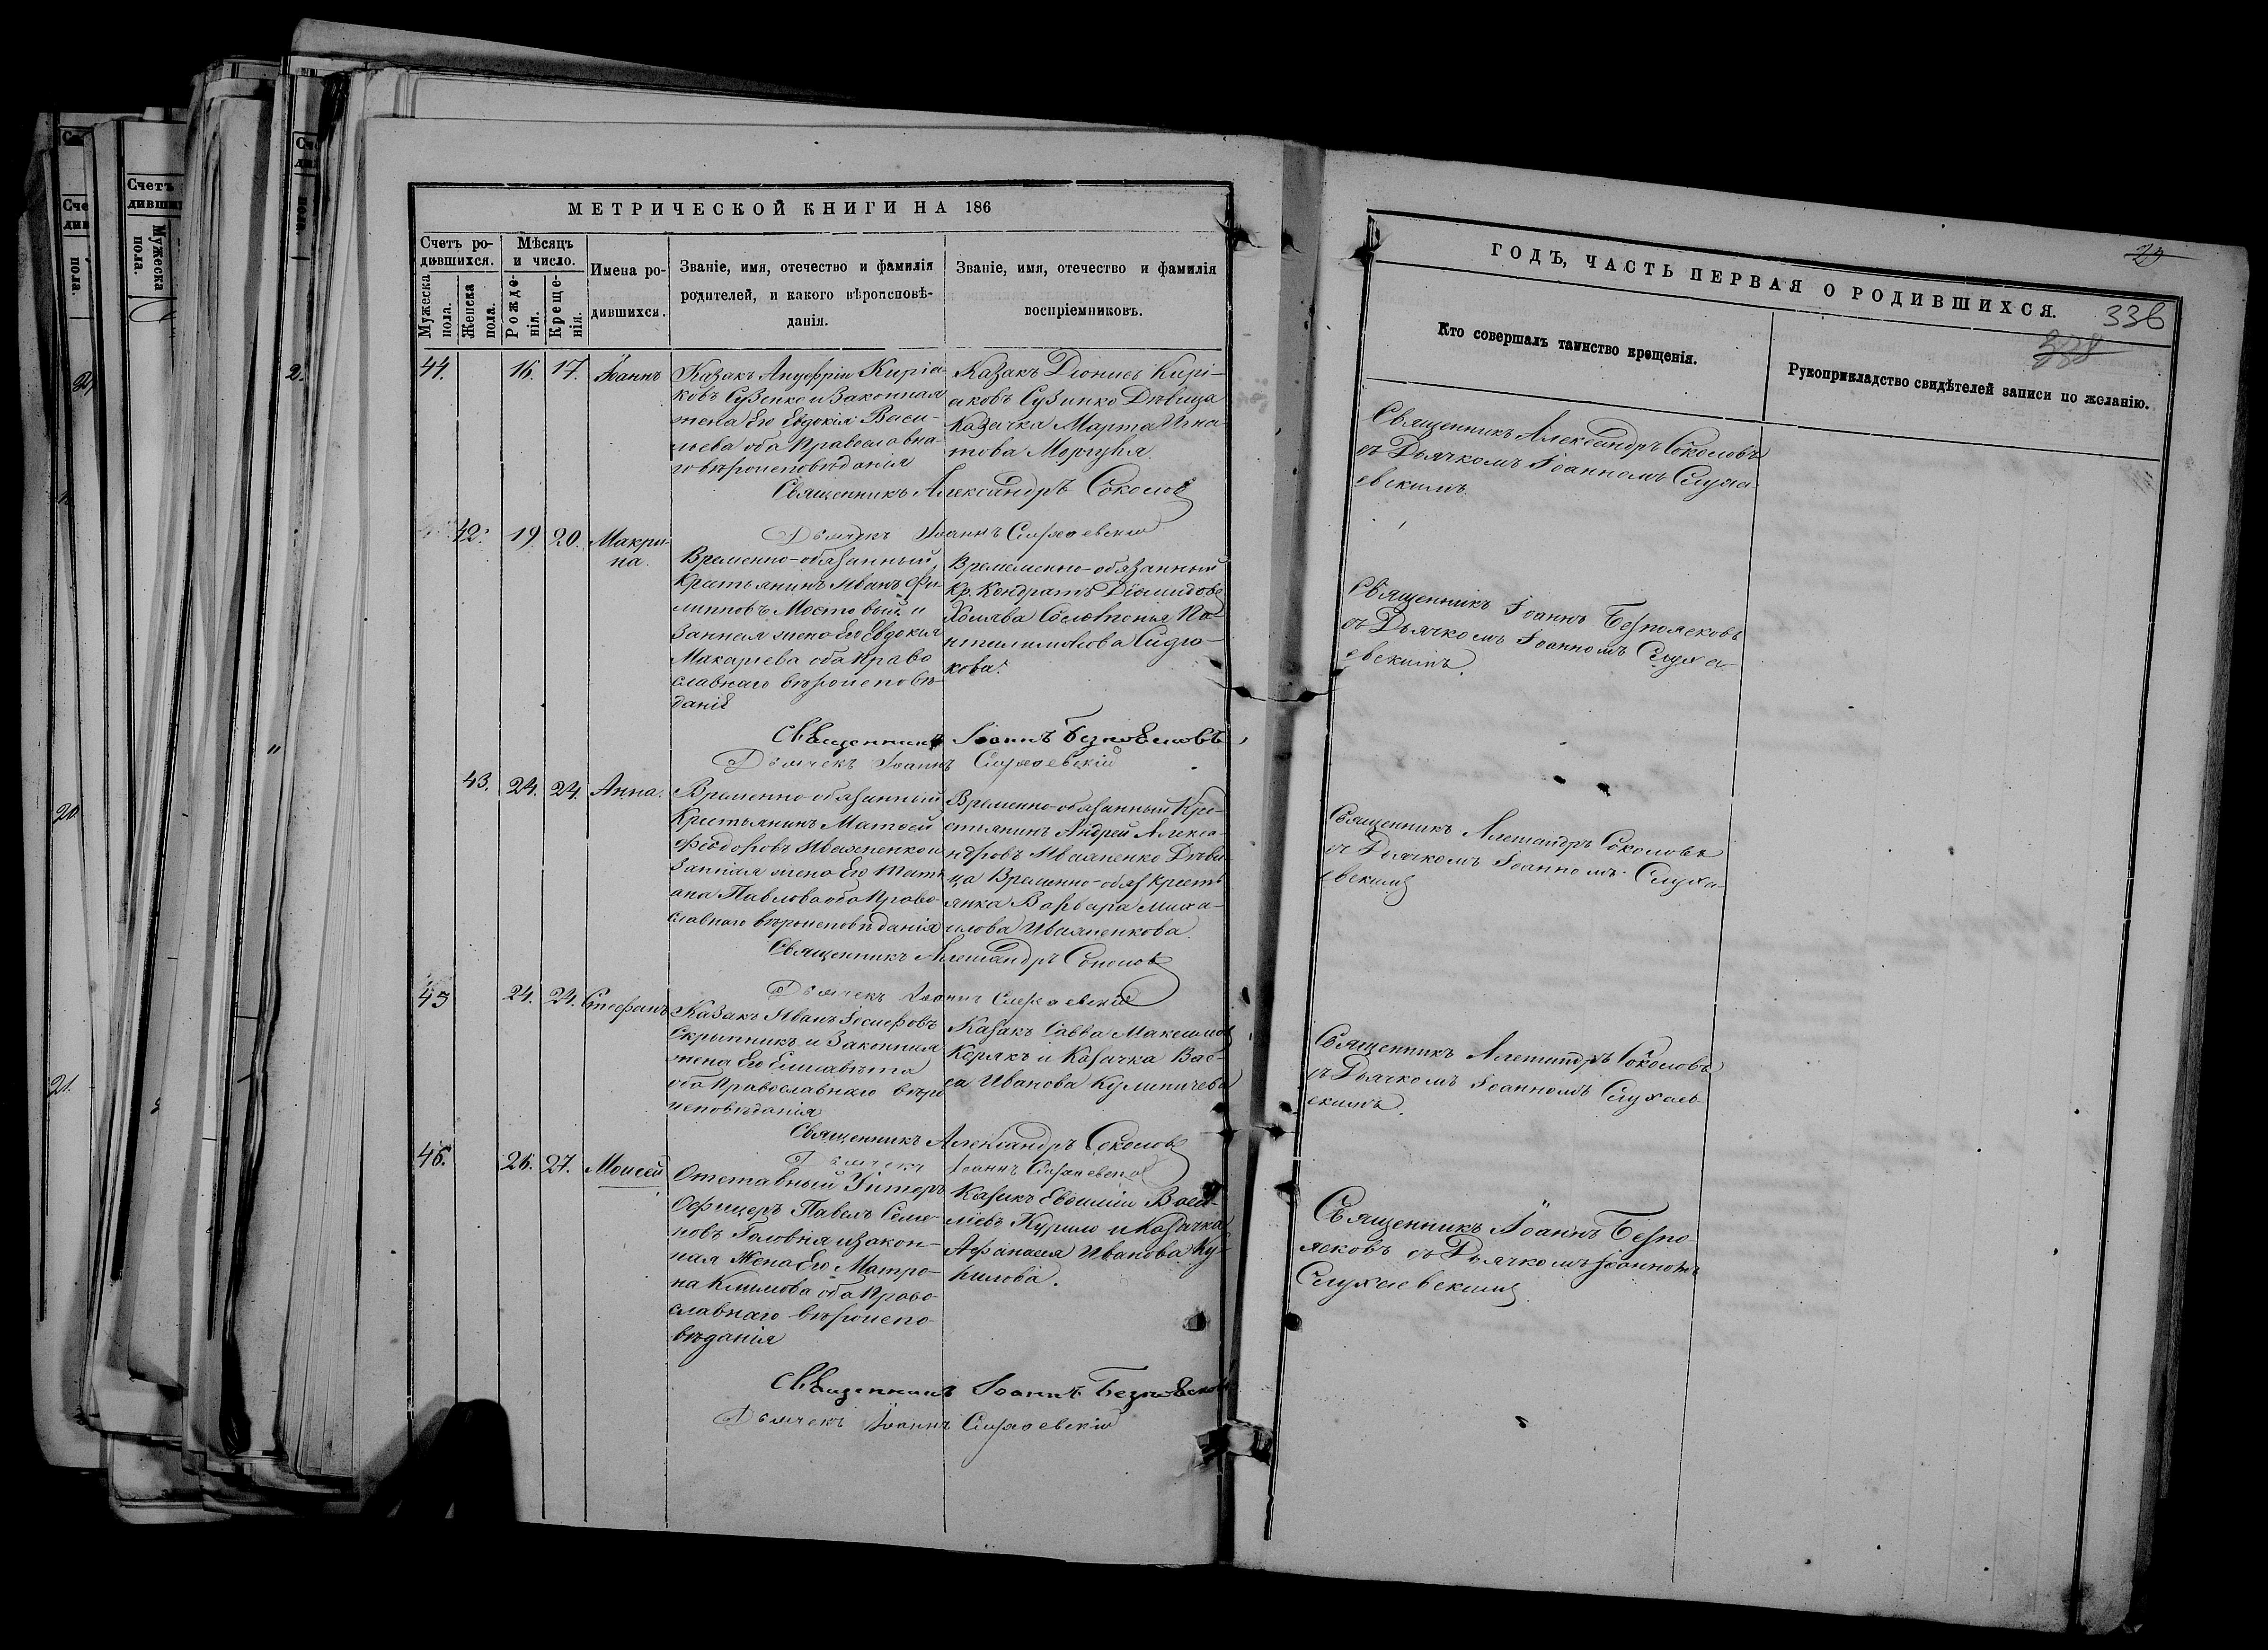 МЕТРИЧЕСКОЙ КНИГИ НА 186
Счетъ ро-
дившихся.
Мужеска
пола.
Женска
пола.
Мѣсяцъ
и число.
Рожде-
нія.
Креще-
нія.
Имена ро-
дившихся.
Званіе, имя, отечество и фамилія
родителей, и какого вѣроисповѣ-
данія.
Званіе, имя, отечество и фамилія
воспріемниковъ.
44. 16. 17. Іоаннъ
Казакъ Ануфрій Киріа-
ковъ Сузенко и Законная
жена Его Евдокія Васи-
льева оба Православна-
го вѣроисповѣданія
Казакъ Діонисъ Кирі-
аковъ Сузинко Дѣвица
Казачка Марта Игна-
това Моргуня.
Священникъ Александръ Соколовъ
Дьячекъ Іоаннъ Слухаевскій
42. 19. 20. Макри-
на.
Временно-обязанный,
Крестьянинъ Иванъ Фи-
липповъ Мостовый и
Занная жена Его Евдокія
Макарьева оба Право
славнаго вѣроисповѣ-
данія
Временно-обязанный
Кр. Кондратъ Діомидовъ
Холява
кова.
Священникъ Іоаннъ Безпоясковъ
Дьячекъ Іоаннъ Слухаевскій
43. 24. 24. Анна.
Временно-обязанный
Крестьянинъ Матвей
Феодоровъ Иваненко и
Занная жена Его Тать
ана Павлова оба Право
славнаго вѣроисповѣданія
Временно-обязанный Кре-
стьянинъ Андрей Алекса-
ндровъ Иваненко Дѣви
ца Временно-обяз Кресть
янка Варвара Миха-
илова Иваненкова.
Священникъ Александръ Соколовъ
Дьячекъ Іоаннъ Слухаевскій
45 24. 24. Стефанъ
Казакъ Иванъ Іосифовъ
Скрыпникъ и Законная
жена Его Елисавета
оба Православнаго вѣро
исповѣданія
Казакъ Савва Максимов
Корякъ и Казачка Вас-
са Иванова
Священникъ Александръ Соколовъ
Дьячекъ Іоаннъ Слухаевскій
46. 26. 27. Моисей
Отставный Унтеръ
Офицеръ Павелъ Семе-
новъ Головня и закон-
ная Жена Его Матро-
на Климова оба Право
славнаго вѣроиспо-
вѣданія
Казакъ Евфимій Васи-
ліевъ Курило и Казачка
Афанасія Иванова Ку-
рилова.
Священникъ Іоаннъ Безпоясковъ
Дьячекъ Іоаннъ Слухаевскій
29
ГОДЪ, ЧАСТЬ ПЕРВАЯ О РОДИВШИХСЯ.
336
338
Кто совершалъ таинство крещенія.
Рукоприкладство свидѣтелей записи по желанію.
Священникъ Александръ Соколовъ
съ Дьячкомъ Іоанномъ Слуха-
евскимъ.
Священникъ Іоаннъ Безпоясковъ
съ Дьячкомъ Іоанномъ Слуха-
евскимъ.
Священникъ Александръ Соколовъ
съ Дьячкомъ Іоанномъ Слуха-
евскимъ
Священникъ Александръ Соколовъ
съ Дьячкомъ Іоанномъ Слухаев-
скимъ.
Священникъ Іоаннъ Безпо-
ясковъ съ Дьячкомъ Іоанномъ
Слухаевскимъ